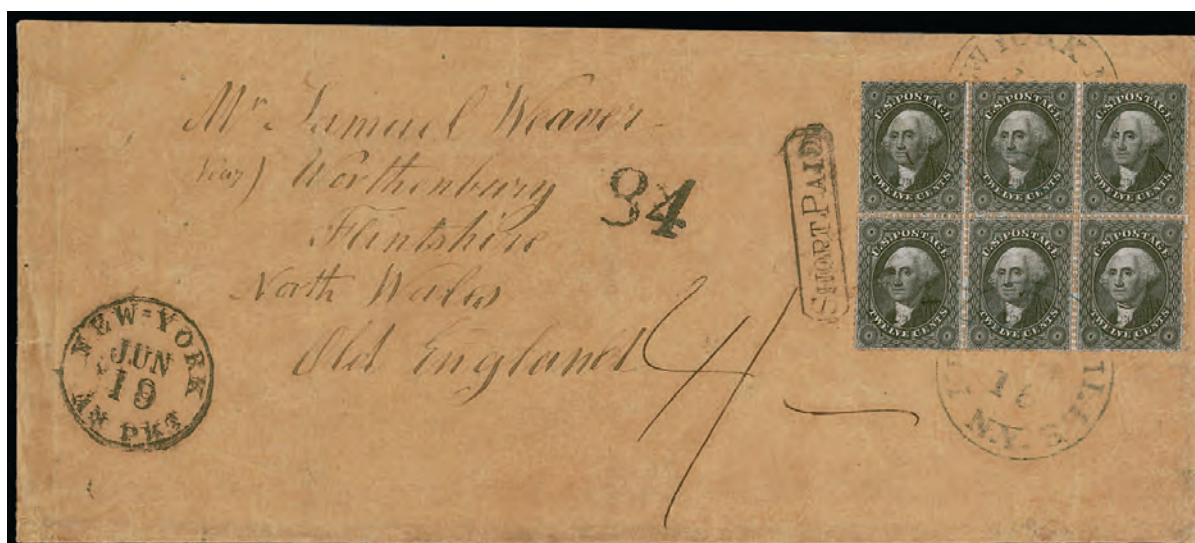 Mr Samuel Weaver
Near) Worthenbury
Flintshire
North Wales
Old England
84
4/-
SHORT PAID
NEW-YORK
JUN
19
AM PKT
U.S. POSTAGE
TWELVE CENTS
U.S. POSTAGE
TWELVE CENTS
U.S. POSTAGE
TWELVE CENTS
U.S. POSTAGE
TWELVE CENTS
U.S. POSTAGE
TWELVE CENTS
U.S. POSTAGE
TWELVE CENTS
YORK
16
N.Y.